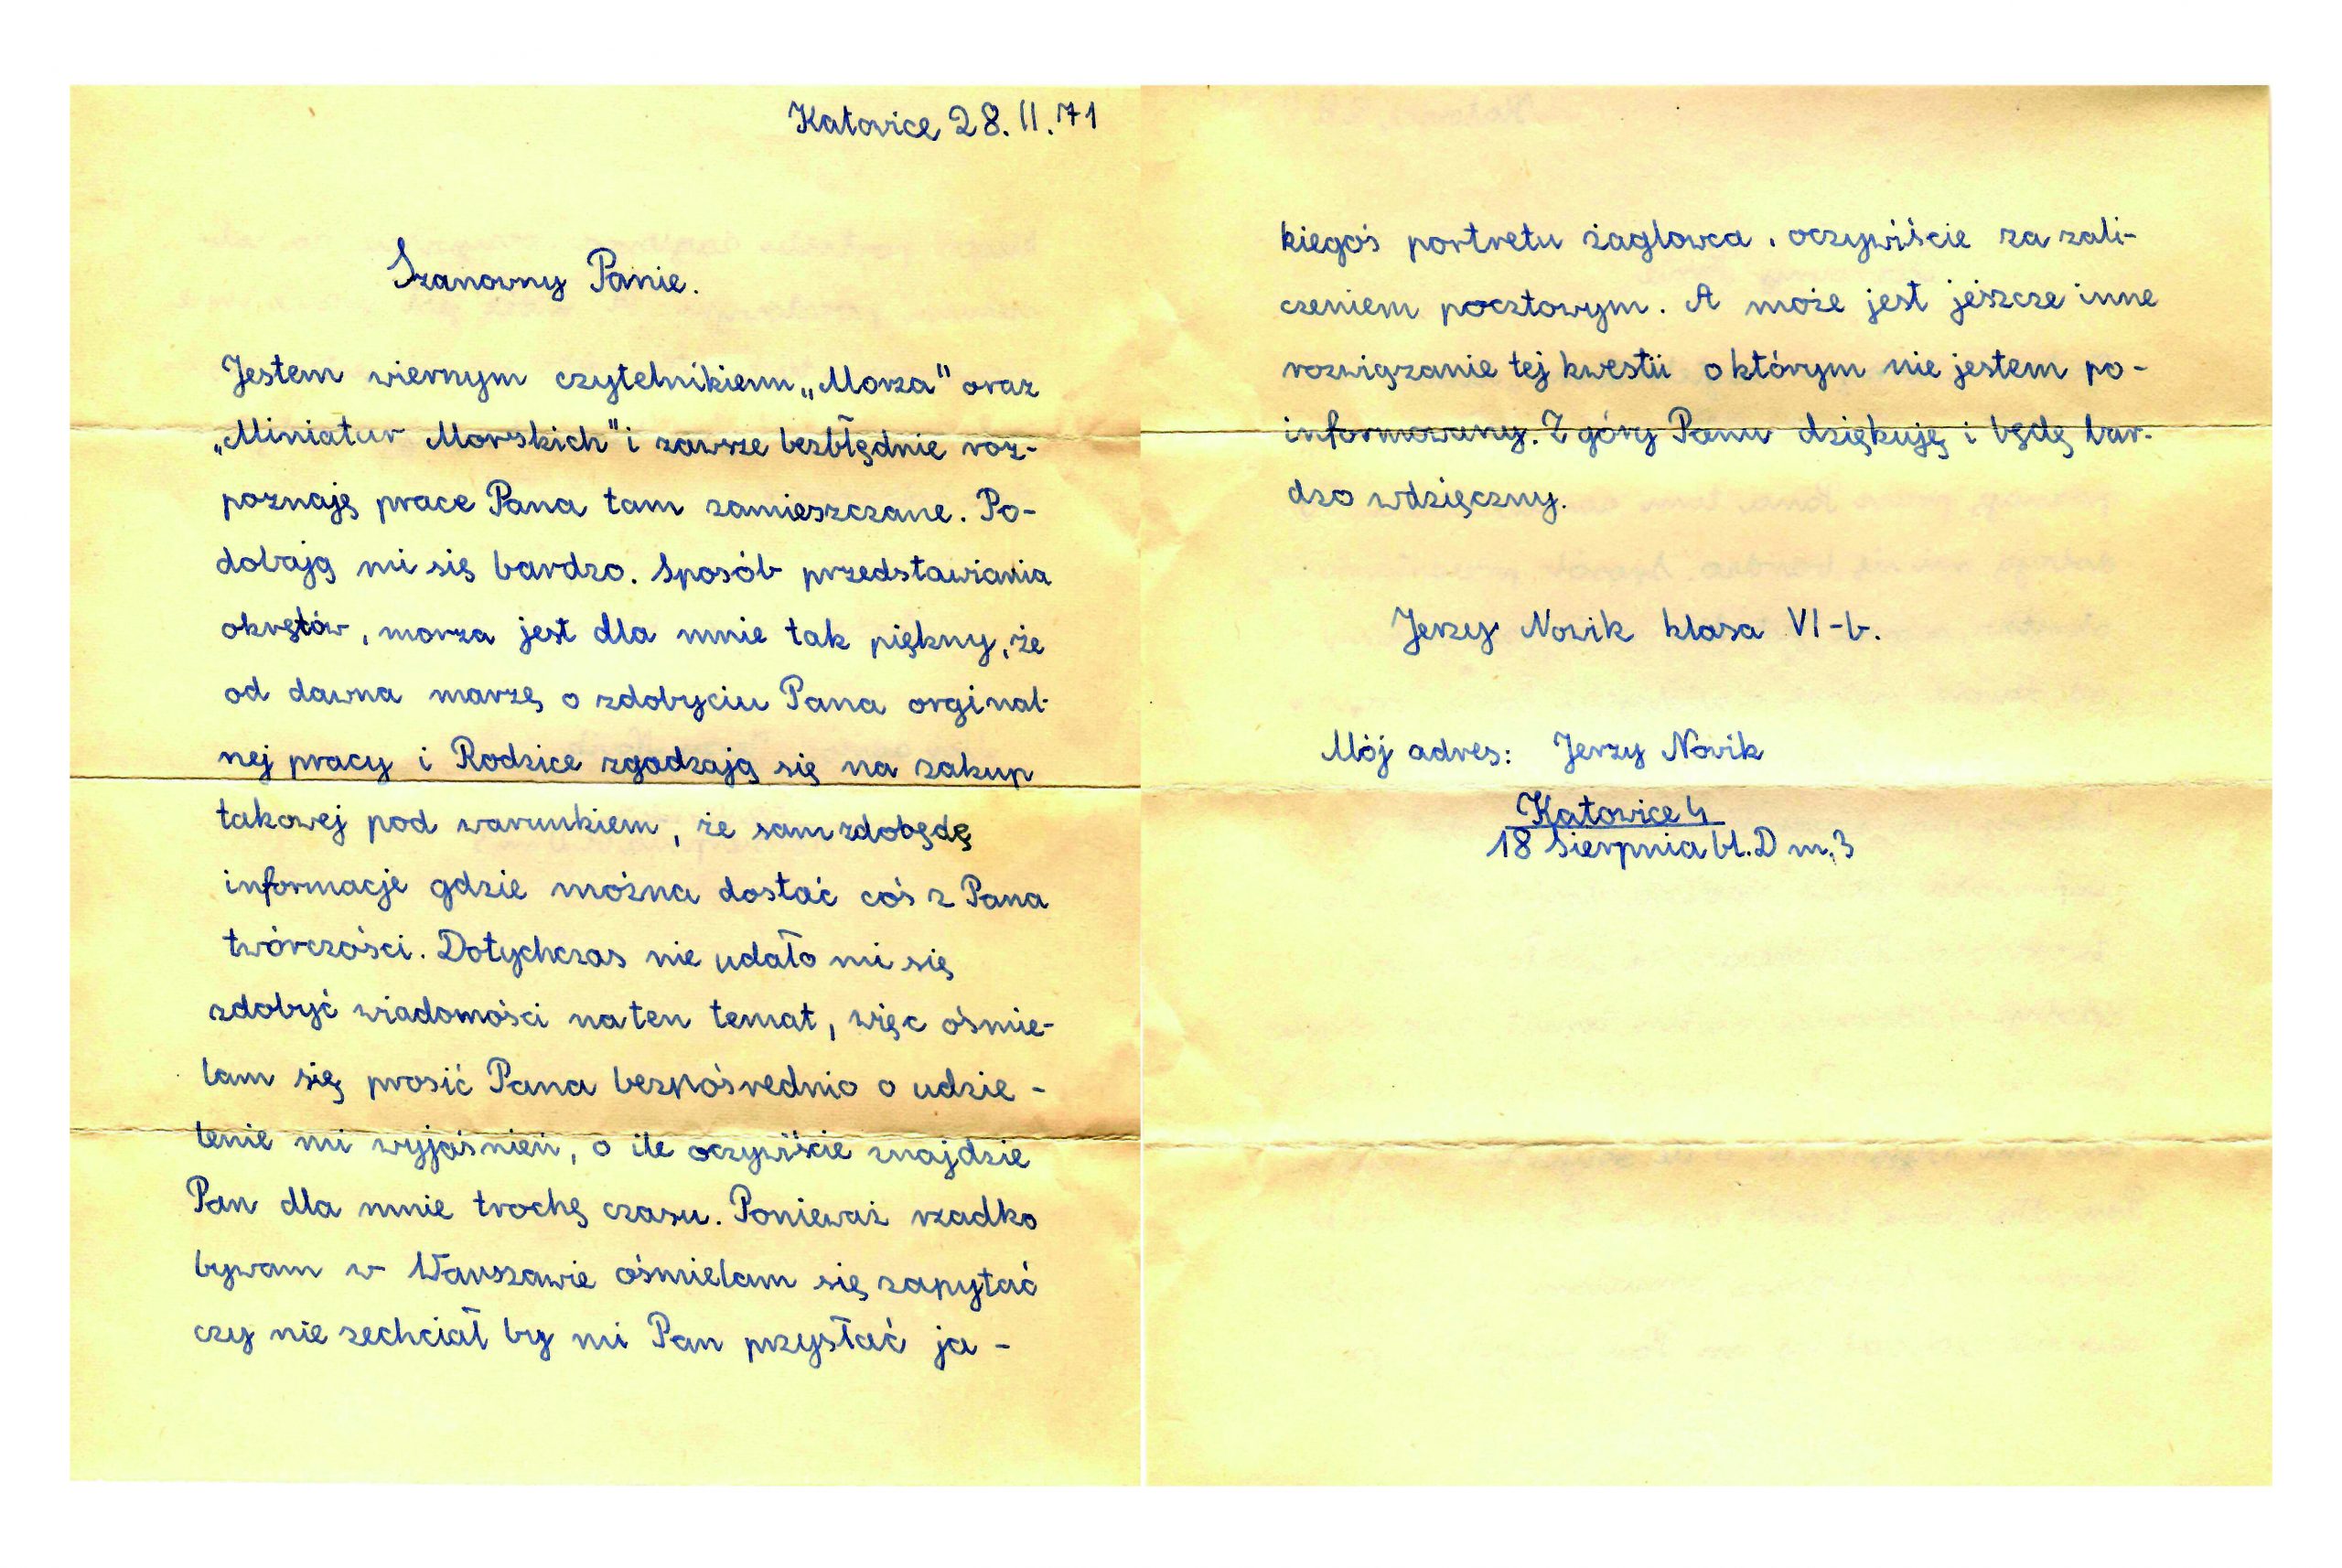 Katowice 28.II.71
Szanowny Panie.
Jestem wiernym czytelnikiem „Morza" oraz
„Miniatur Morskich" i zawsze bezbłędnie roz-
poznaję prace Pana tam zamieszczane. Po-
dobają mi się bardzo. Sposób przedstawiania
okrętów, morza jest dla mnie tak piękny, że
od dawna marzę o zdobyciu Pana orginal-
nej pracy i Rodzice zgadzają się na zakup
takowej pod warunkiem, że sam zdobędę
informacje gdzie można dostać coś z Pana
twórczości. Dotychczas nie udało mi się
zdobyć wiadomości na ten temat, więc ośmie-
lam się prosić Pana bezpośrednio o udzie-
lenie mi wyjaśnień, o ile oczywiście znajdzie
Pan dla mnie trochę czasu. Ponieważ rzadko
bywam w Warszawie ośmielam się zapytać
czy nie zechciał by mi Pan przysłać ja-
kiegoś portretu żaglowca, oczywiście za zali-
czeniem pocztowym. A może jest jeszcze inne
rozwiązanie tej kwestii o którym nie jestem po-
informowany. Z góry Panu dziękuję i będę bar-
dzo wdzięczny.
Jerzy Nowik klasa VI-b.
Mój adres: Jerzy Nowik
Katowice 4
18 Sierpnia bl. D m. 3